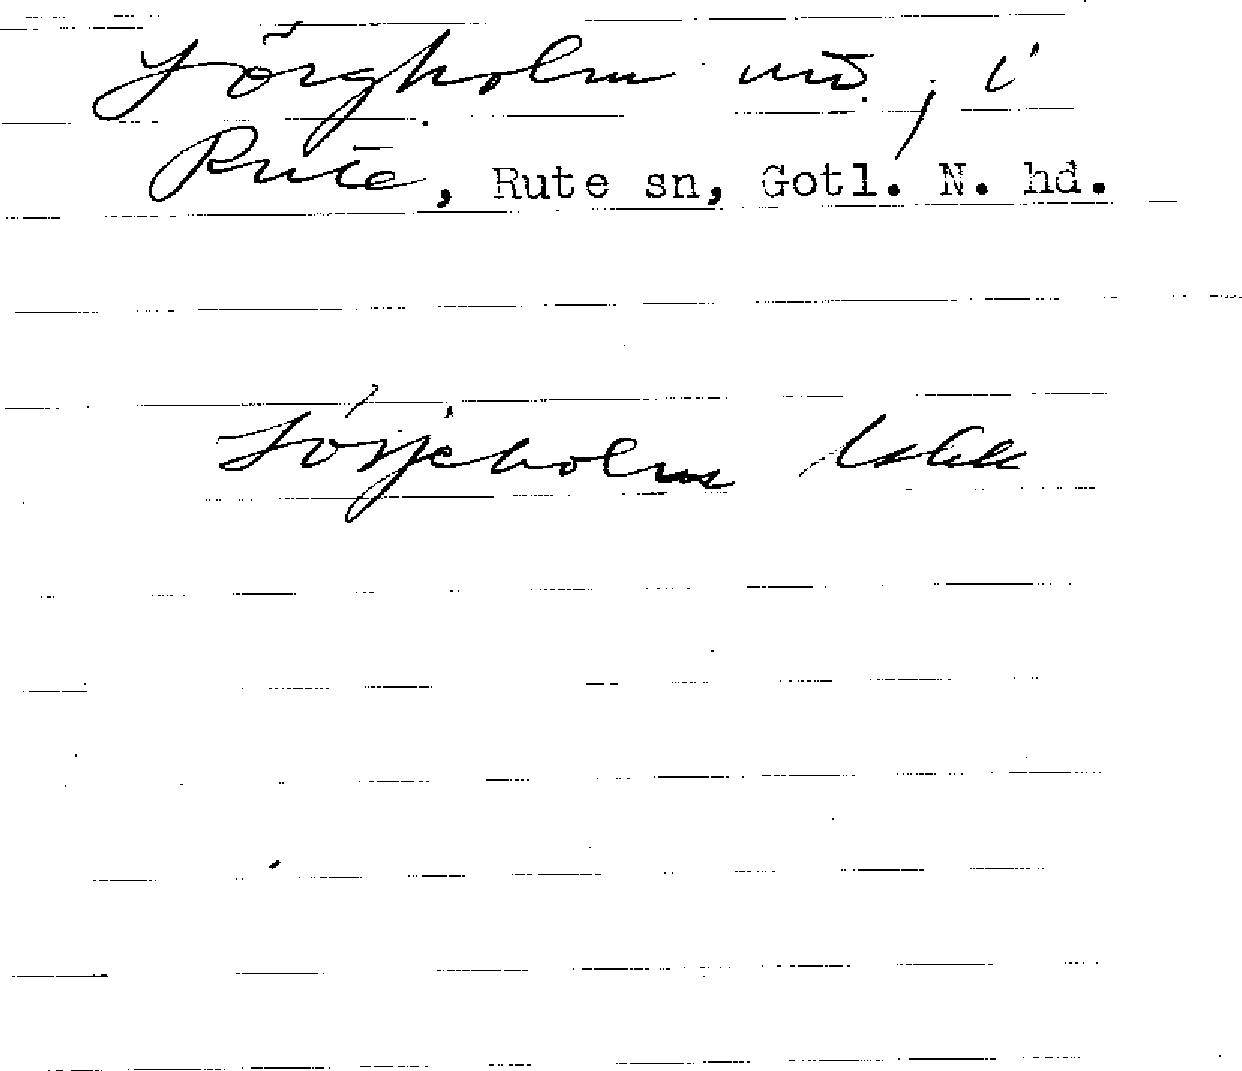 Sörgholm uö, i
Rute, Rute sn, Gotl. N. hd.
Sörjeholm